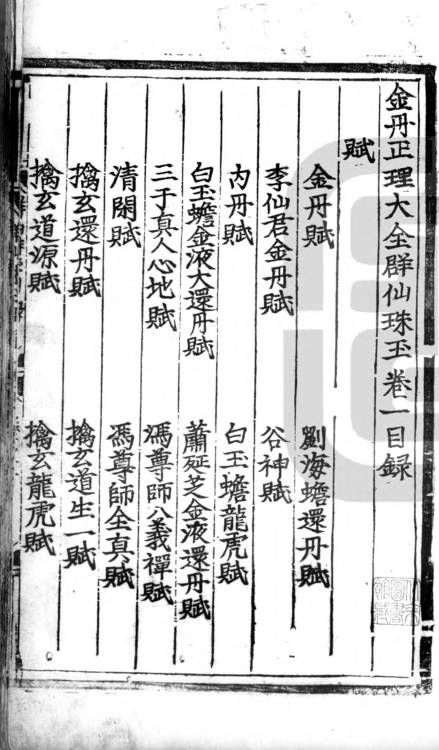 金丹正理大全群仙珠玉卷一目録
賦
金丹賦 劉海蟾還丹賦
李仙君金丹賦 谷神賦
内丹賦 白玉蟾龍虎賦
白玉蟾金液大還丹賦 蕭延芝金液還丹賦
三于真人心地賦 馮尊師八義禪賦
清閑賦 馮尊師全真賦
擒玄還丹賦 擒玄道生一賦
擒玄道源賦 擒玄龍虎賦